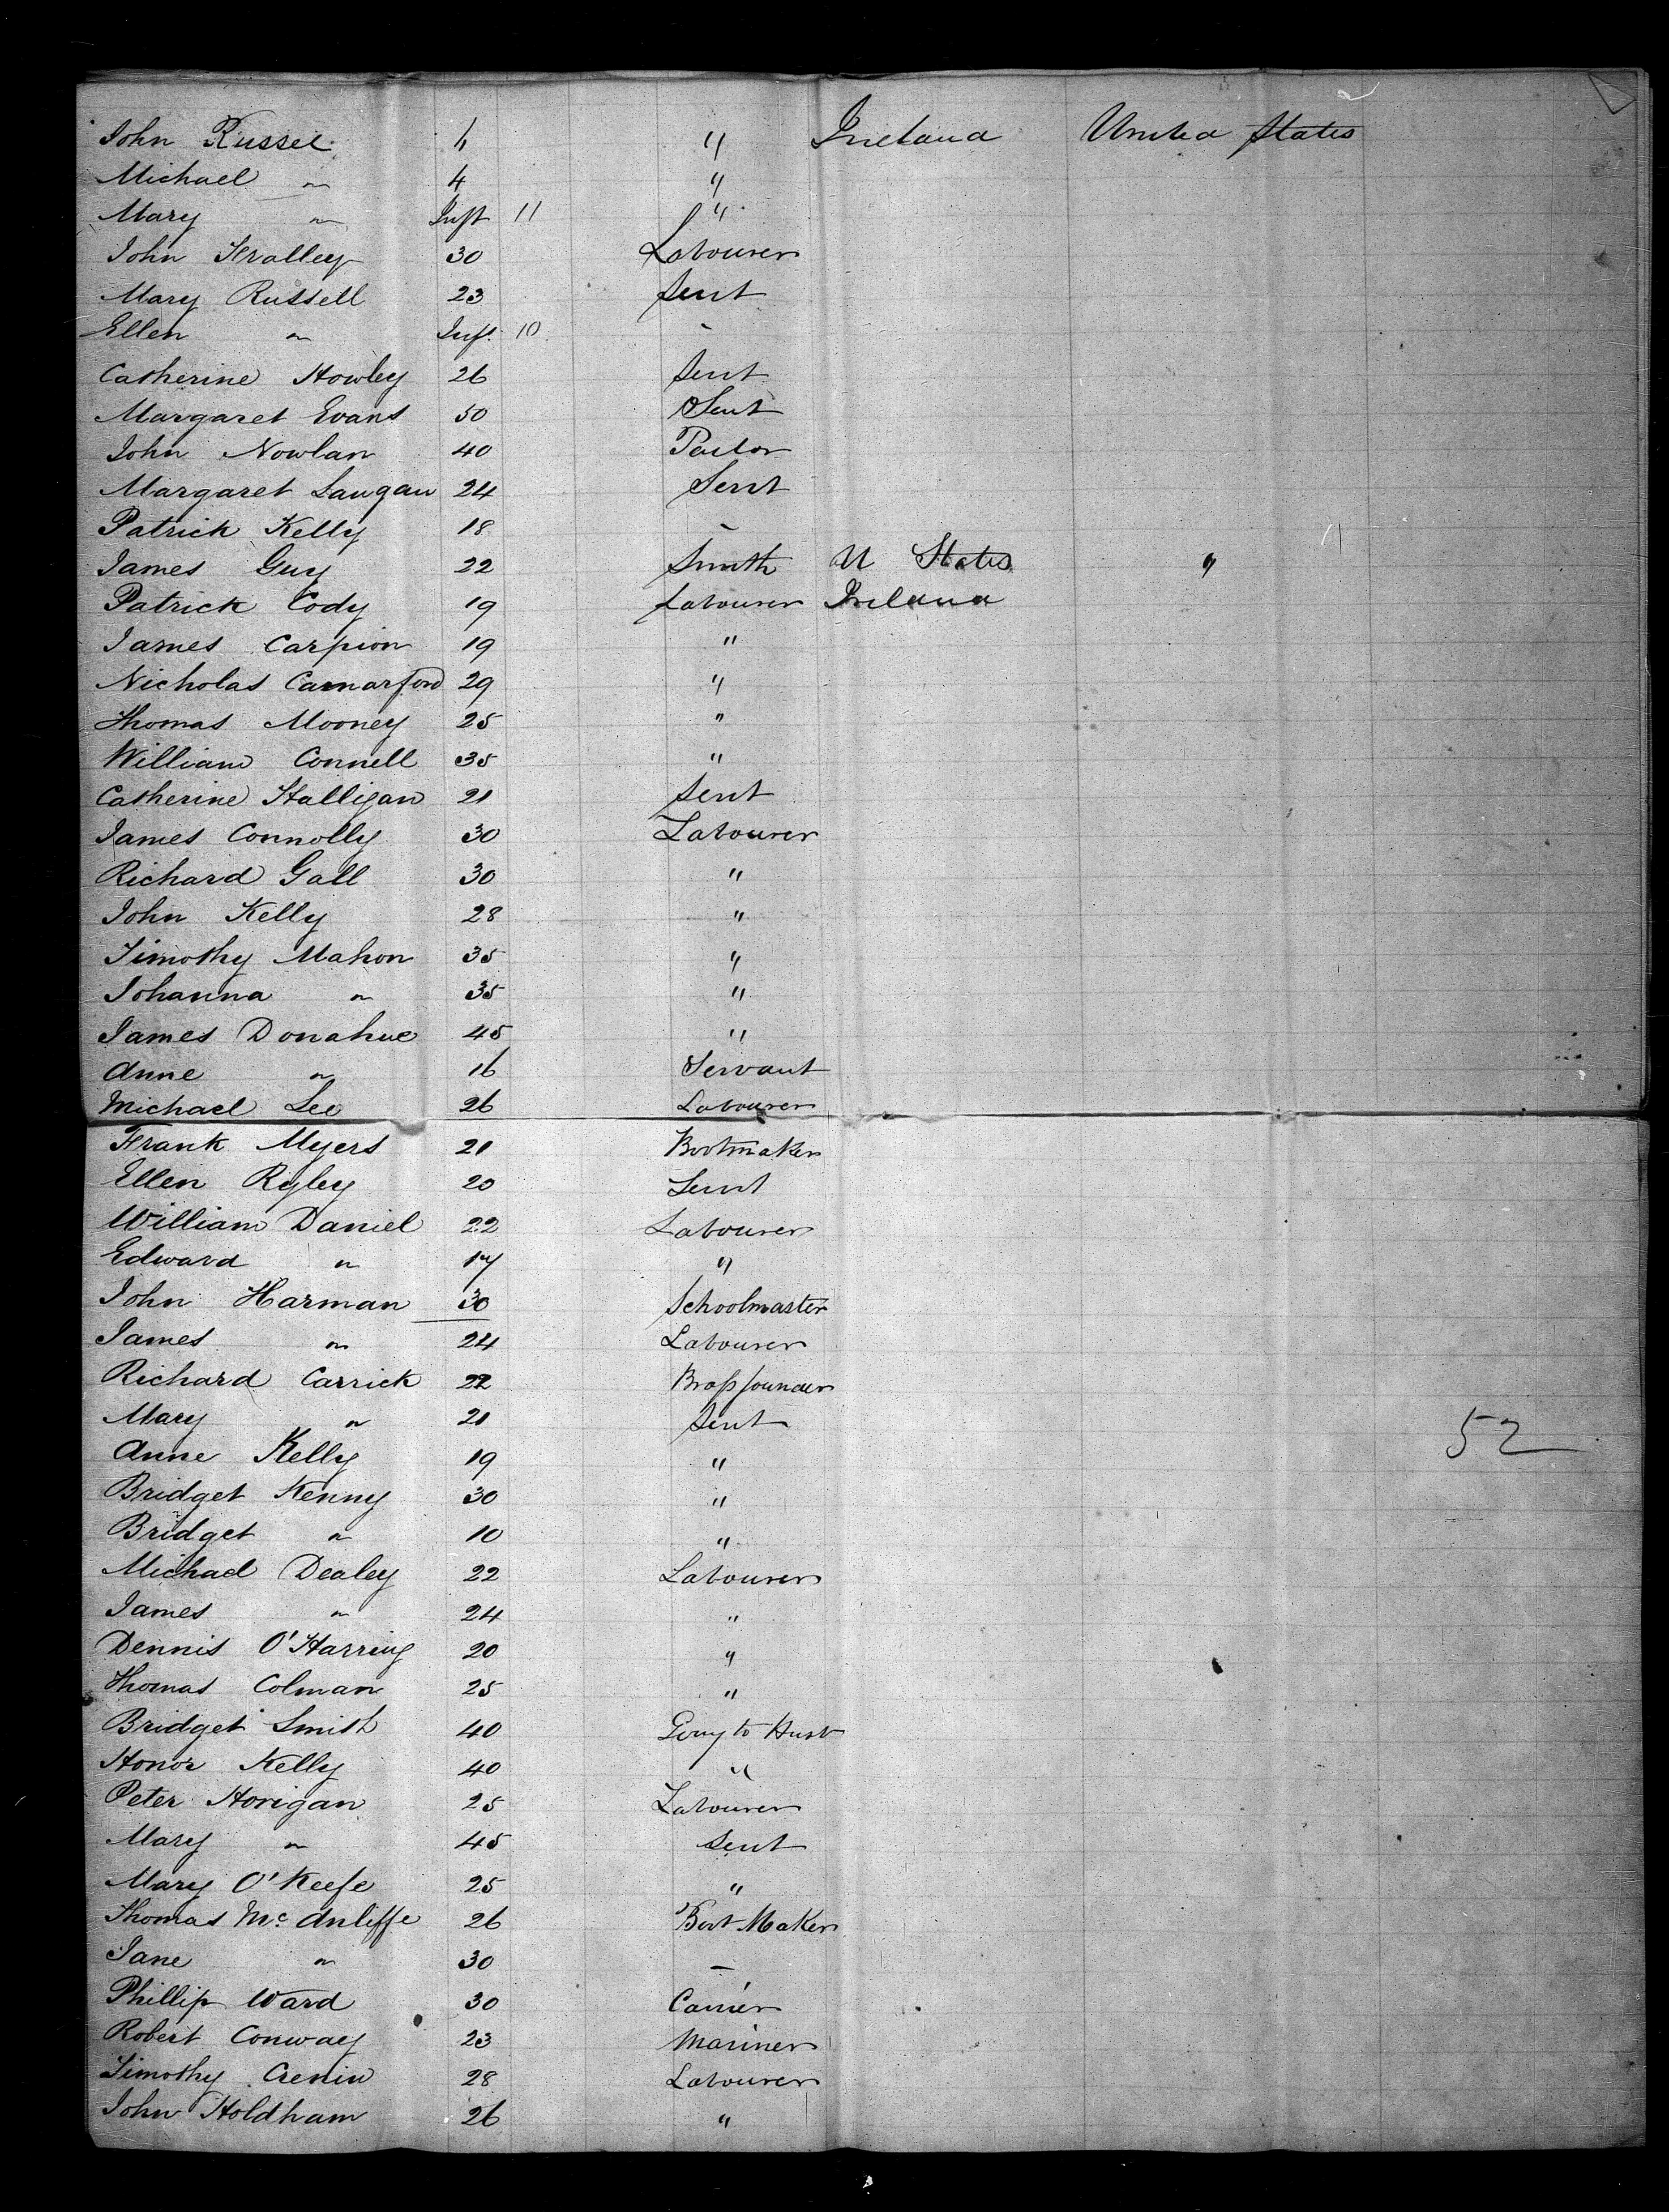 John Russel 6 " Ireland United States
Michael " 4 "
Mary " Inft 11 "
John Fralley 30 Labourer
Mary Russell 23 Servt
Ellen " Inft. 10 -
Catherine Howley 26 Servt
Margaret Evans 50 Servt
John Nowlan 40 Tailor
Margaret Langan 24 Servt
Patrick Kelly 18 -
James Guy 22 Smith U States "
Patrick Cody 19 Labourer Ireland
James Carpion 19 "
Nicholas Carnarford 29 "
Thomas Mooney 25 "
William Connell 35 "
Catherine Halligan 21 Servt
James Connolly 30 Labourer
Richard Gall 30 "
John Kelly 28 "
Timothy Mahon 35 "
Johanna " 35 "
James Donahue 45 "
Anne " 16 Servant
Michael Lee 26 Labourer
Frank Myers 21 Bootmaker
Ellen Ryley 20 Servt
William Daniel 22 Labourer
Edward " 17 "
John Harman 30 Schoolmaster
James " 24 Labourer
Richard Carrick 22 Brassfounder
Mary " 21 Servt
Anne Kelly 19 "
52
Bridget Kenny 30 "
Bridget " 10 "
Michael Dealey 22 Labourer
James " 24 "
Dennis O'Harring 20 "
Thomas Colman 25 "
Bridget Smith 40 Going to Husb
Honor Kelly 40 "
Peter Horigan 25 Labourer
Mary " 45 Servt
Mary O'Keefe 25 "
Thomas Mc Auliffe 26 Boot Maker
Jane " 30 -
Phillip Ward 30 Carrier
Robert Conway 23 Mariner
Timothy Crenin 28 Labourer
John Holdham 26 "